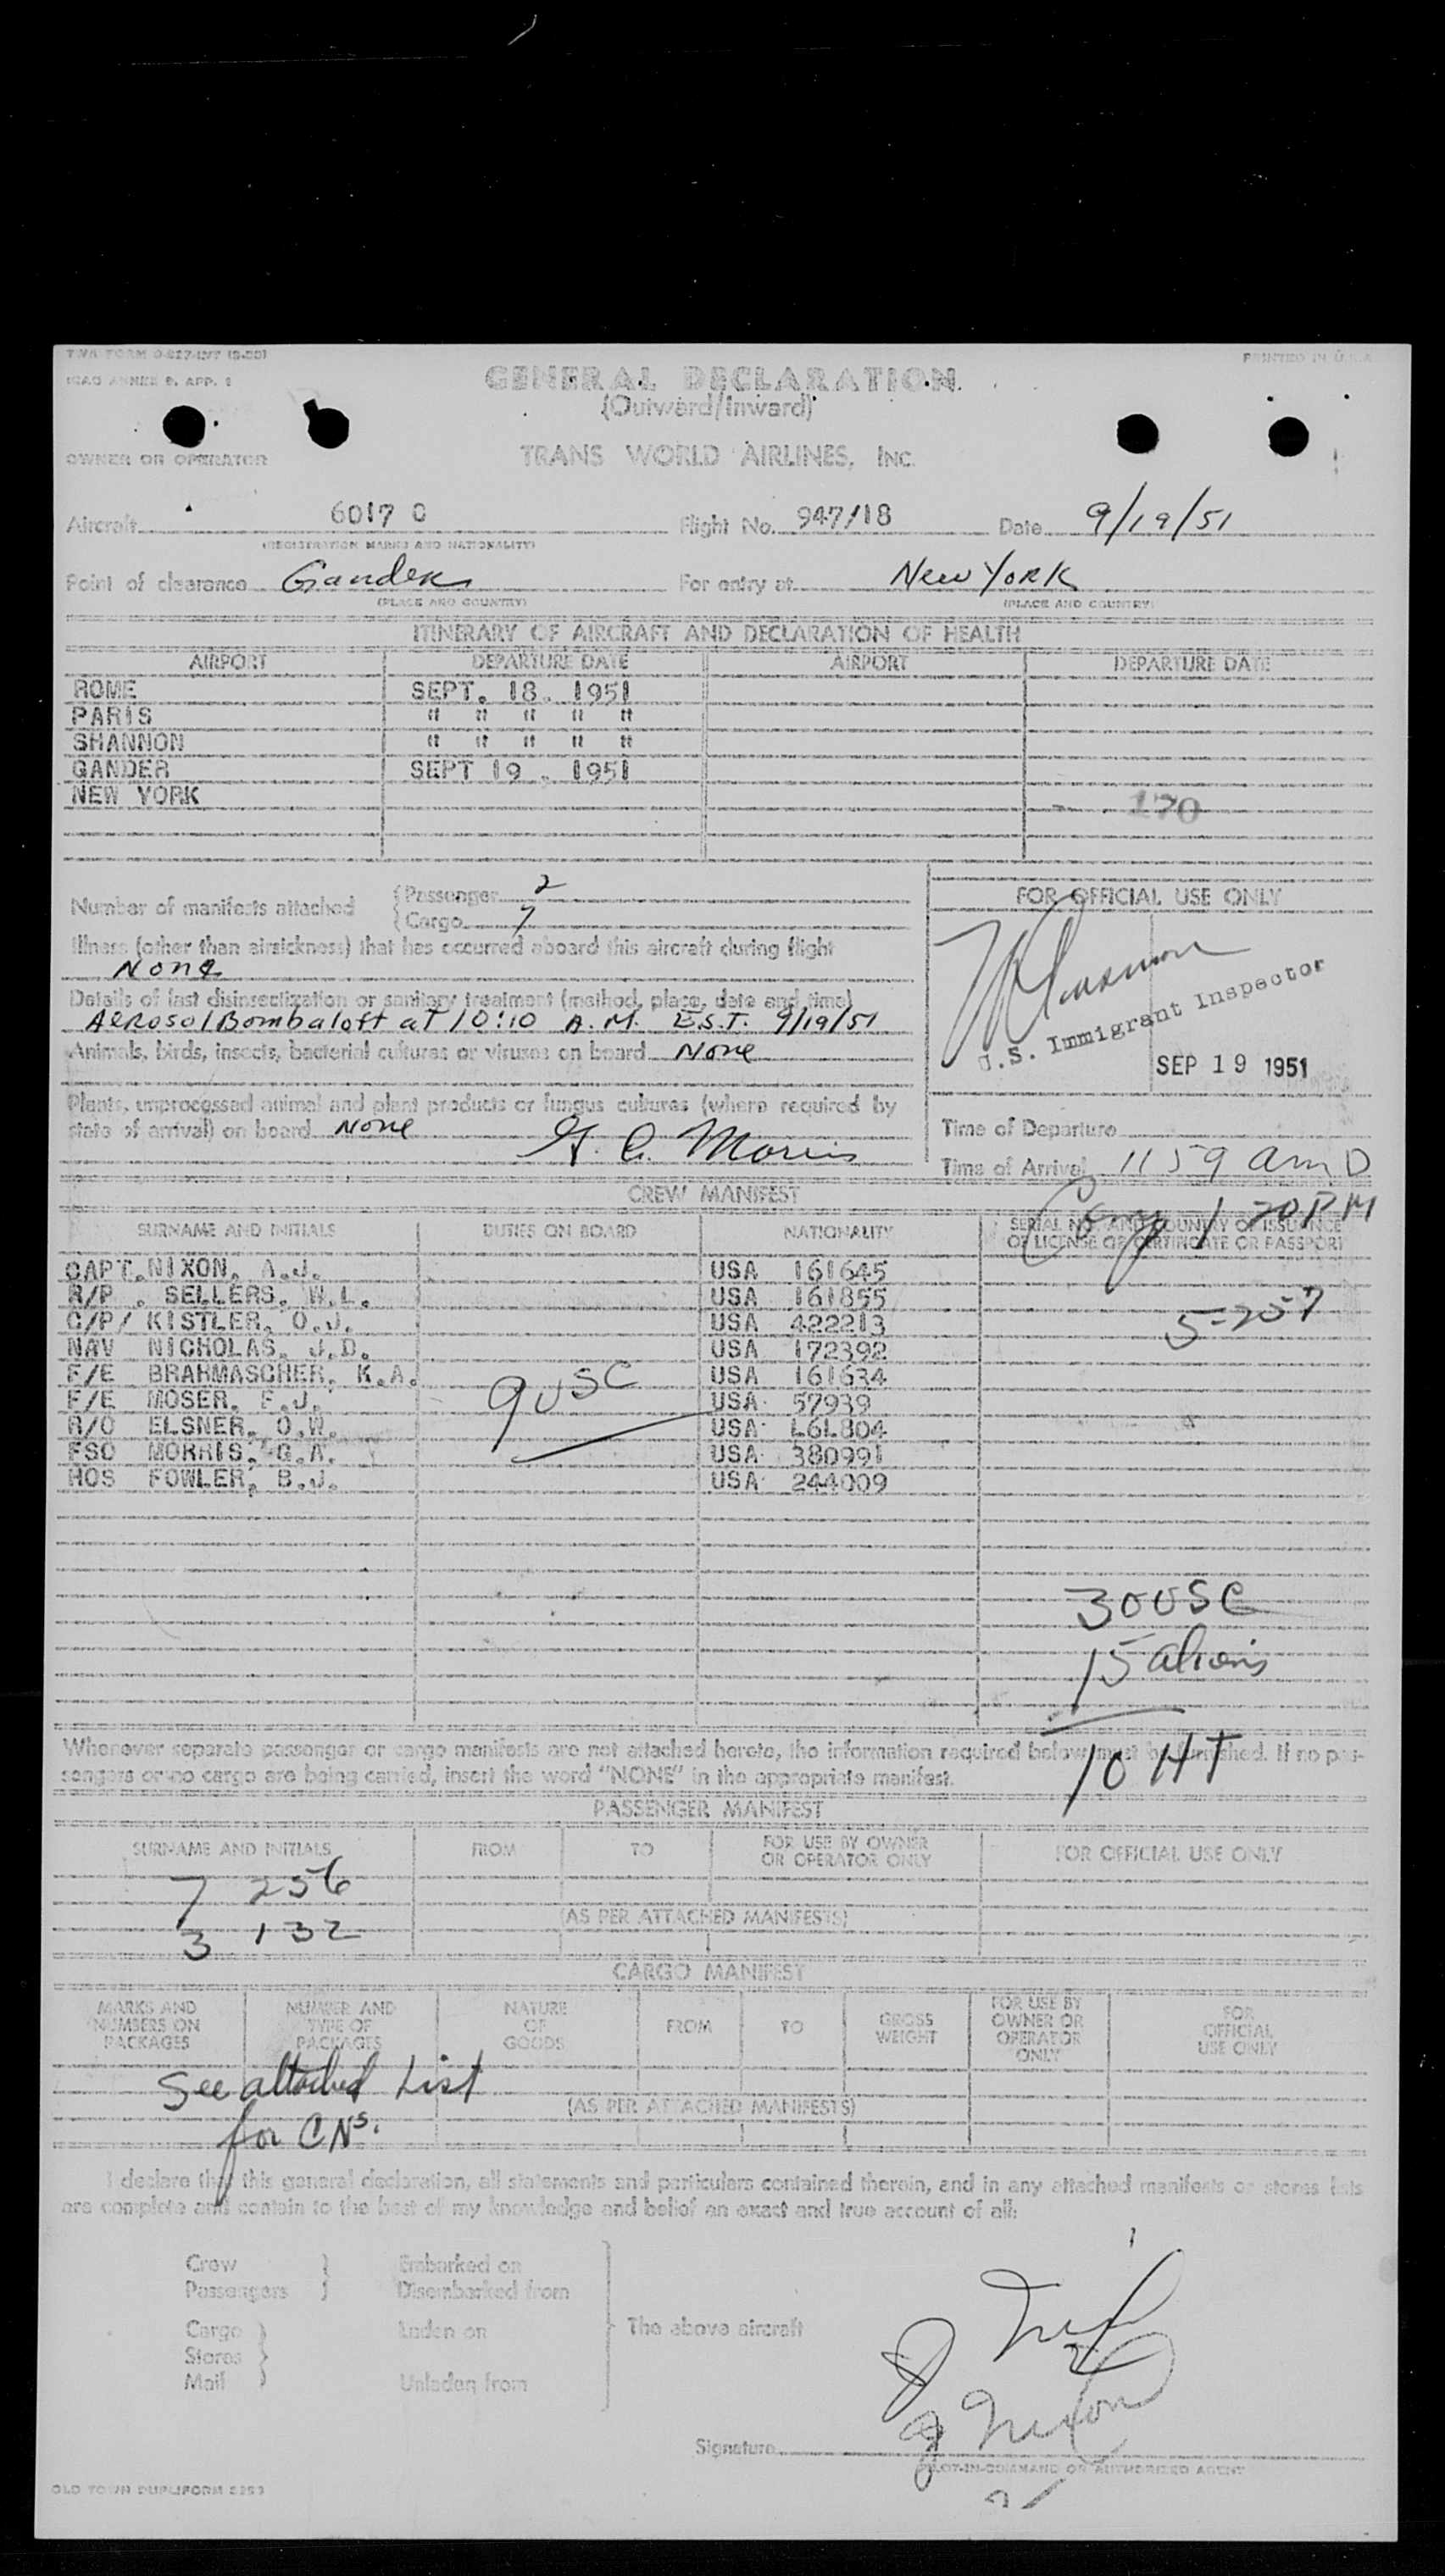 ICAO ANNEX 9, APP. 1
PRINTED IN U.S.A.
GENERAL DECLARATION
(Outward/Inward)
OWNER OR OPERATOR TRANS WORLD AIRLINES, INC.
Aircraft 6017 C Flight No. 947/18 Date 9/19/51
(REGISTRATION MARKS AND NATIONALITY)
Point of clearance Gander For entry at New York
(PLACE AND COUNTRY) (PLACE AND COUNTRY)
ITINERARY OF AIRCRAFT AND DECLARATION OF HEALTH
AIRPORT DEPARTURE DATE AIRPORT DEPARTURE DATE
ROME SEPT. 18. 1951
PARIS " " " " "
SHANNON " " " " "
GANDER SEPT 19 . 1951
NEW YORK
170
Number of manifests attached (Passenger 2
(Cargo 7
Illness (other than airsickness) that has occurred aboard this aircraft during flight
None
Details of last disinsectization or sanitary treatment (method, place, date and time)
Aerosol Bomb aloft at 10:10 A.M. E.S.T. 9/19/51
Animals, birds, insects, bacterial cultures or viruses on board None
Plants, unprocessed animal and plant products or fungus cultures (where required by
state of arrival) on board None
G. A. Morris
FOR OFFICIAL USE ONLY
U.S. Immigrant Inspector
SEP 19 1951
Time of Departure
Time of Arrival 11 59 am D
1 20 PM
CREW MANIFEST
SURNAME AND INITIALS DUTIES ON BOARD NATIONALITY SERIAL NO. AND COUNTRY OF ISSUANCE
OF LICENSE OR CERTIFICATE OR PASSPORT
CAPT. NIXON, A.J. USA 161645
R/P . SELLERS, W.L. USA 161855
C/P/ KISTLER, O.J. USA 422213
5-257
NAV NICHOLAS, J.D. USA 172392
F/E BRAHMASCHER, K.A. USA 161634
9 USC
F/E MOSER, F.J. USA 57939
R/O ELSNER, O.W. USA L6L804
FSO MORRIS, G.A. USA 380991
HOS FOWLER, B.J. USA 244009
30 USC
15 aliens
10 HT
Whenever separate passenger or cargo manifests are not attached hereto, the information required below must be furnished. If no pas-
sengers or no cargo are being carried, insert the word "NONE" in the appropriate manifest.
PASSENGER MANIFEST
SURNAME AND INITIALS FROM TO FOR USE BY OWNER OR OPERATOR ONLY FOR OFFICIAL USE ONLY
7 256
(AS PER ATTACHED MANIFESTS)
3 132
CARGO MANIFEST
MARKS AND NUMBERS ON PACKAGES NUMBER AND TYPE OF PACKAGES NATURE OF GOODS FROM TO GROSS WEIGHT FOR USE BY OWNER OR OPERATOR ONLY FOR OFFICIAL USE ONLY
See attached List
(AS PER ATTACHED MANIFESTS)
for CNs.
I declare that this general declaration, all statements and particulars contained therein, and in any attached manifests or stores lists
are complete and contain to the best of my knowledge and belief an exact and true account of all:
Crew Embarked on
Passengers Disembarked from
Cargo Laden on The above aircraft
Stores
Mail Unladen from
Nixon
Signature
PILOT-IN-COMMAND OR AUTHORIZED AGENT
OLD TOWN DUPLIFORM 5293